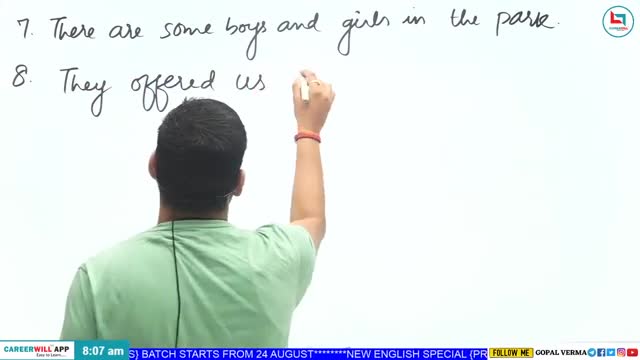 7. There are some boys and girls in the park.
8. They offered us
CAREERWILL APP
Easy to Learn....
8:07 am
S} BATCH STARTS FROM 24 AUGUST********NEW ENGLISH SPECIAL {PR
FOLLOW ME GOPAL VERMA